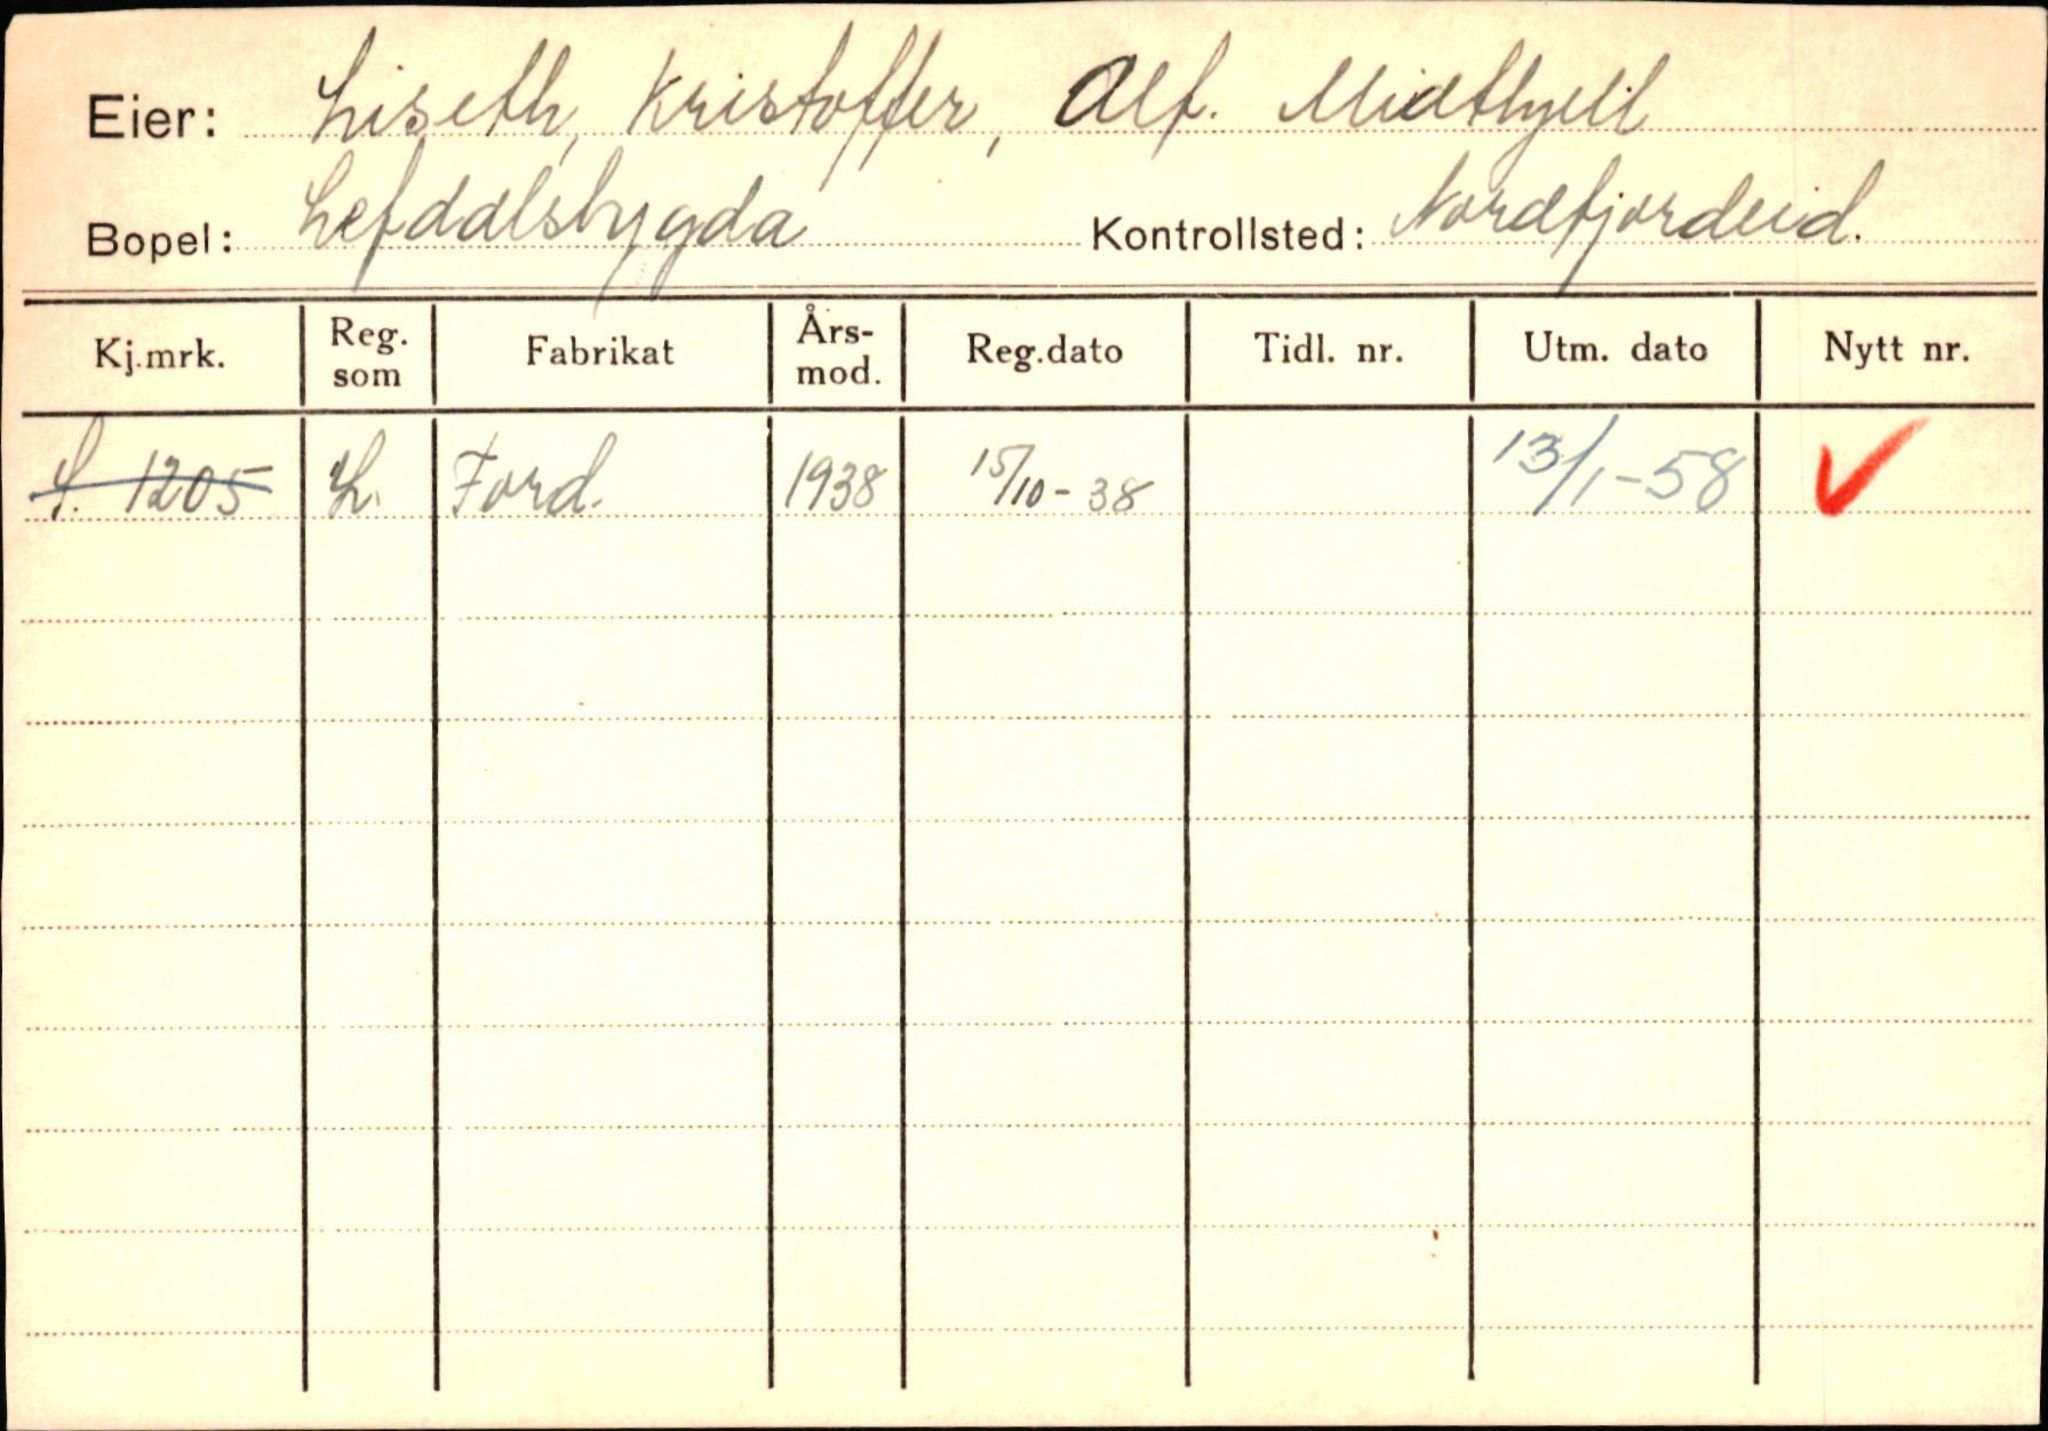 Eier: Liseth, Kristoffer, Alf. Midthjell
Bopel: Lefdalsbygda Kontrollsted: Nordfjordeid.
Kj.mrk. Reg. som Fabrikat Års-mod. Reg.dato Tidl. nr. Utm. dato Nytt nr.
S. 1205 L. Ford. 1938 15/10-38 13/1-58 ✓